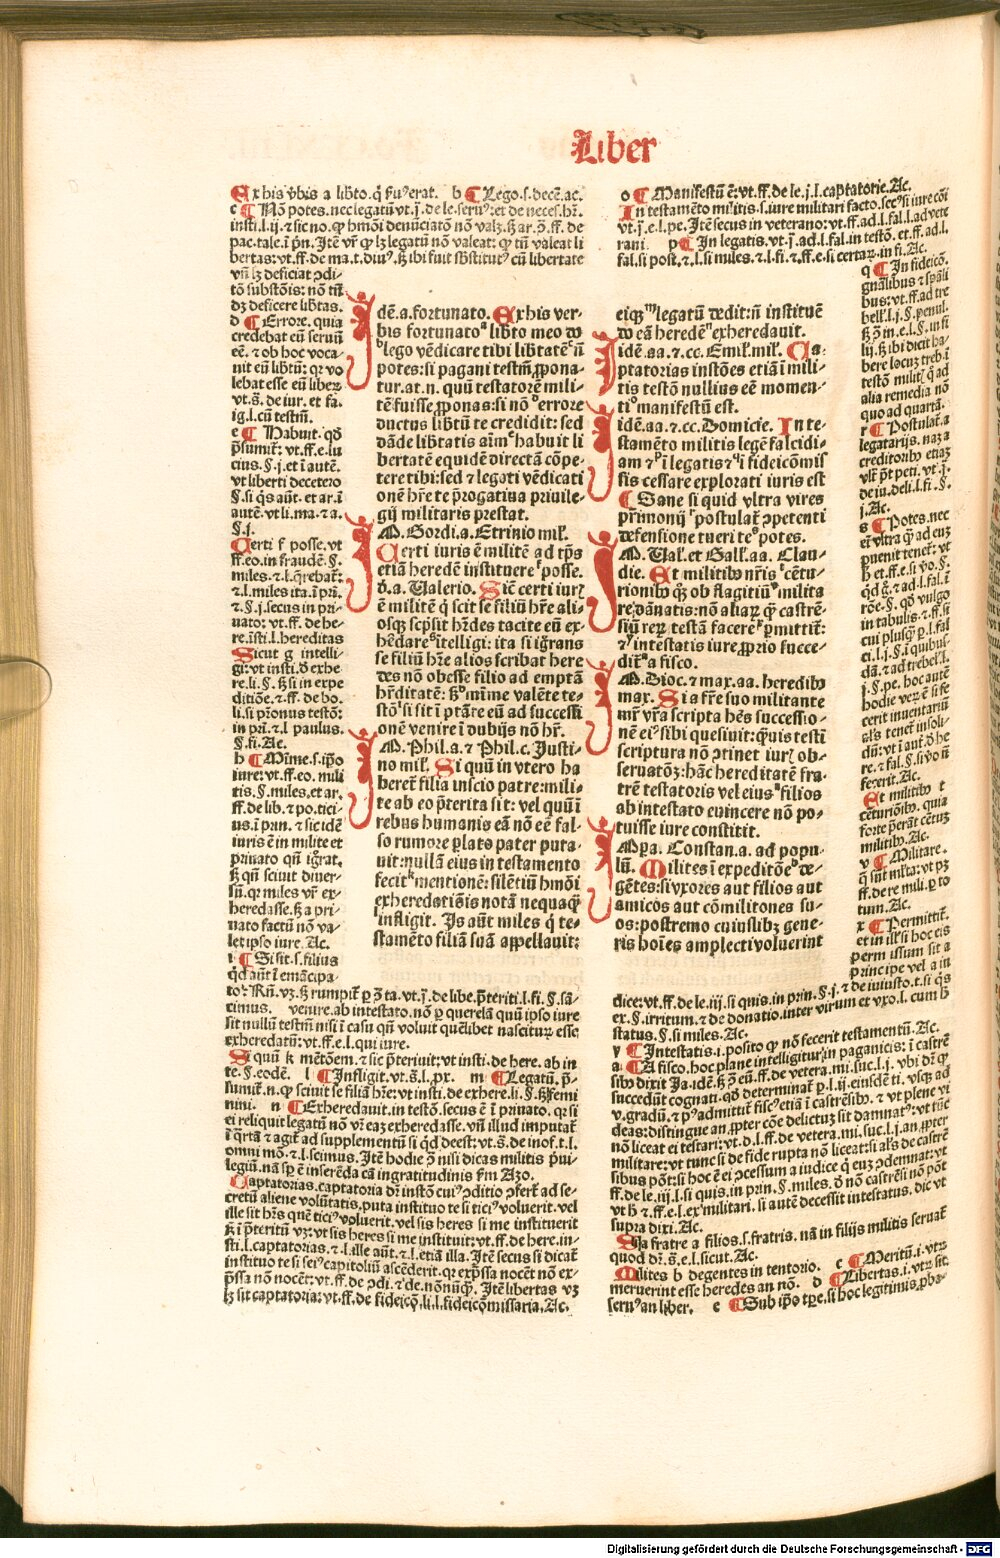 Liber
Ex his v̄bis a lib̄to.q̄ fu᷒erat. b ¶ Lego.s.decē.ac.
c ¶ Nō potes.nec legatū vt.j.de le.seru᷒:et de neces.hr̄.
insti.l.ij.⁊ sic no.ꝙ hmōi denūciatō nō valꝫ.ꝫ ar.ↄ̄.ff.de
pac.tale.ī pn̄.Itē vr̄ ꝙ lꝫ legatū nō valeat: ꝙ tn̄ valeat li
bertas:vt.ff.de ma.t.diu᷒.ꝫ ibi fuit sb̄stitut᷒ cū libertate
vn̄ lꝫ deficiat ↄdi-
tō substōis: nō tn̄
dꝫ deficere lib̄tas.
d ¶ Errore.quia
credebat eū seruū
eē.⁊ ob hoc voca-
uit eū lib̄tū: qꝛ vo
lebat esse eū liberꝫ
vt.s̄.de iur. et fa.
ig.l.cū testm̄.
e ¶ Habuit. qd̄
p̄sumit᷑: vt.ff.e.lu
cius.§.j.et ī autē.
vt liberti decetero
§.si q̄s aūt. et ar.ī
autē.vt li.ma.⁊ a.
§.j.
Certi f posse.vt
ff.eo.in fraudē.§.
miles.⁊ l.q̄rebat᷑:
⁊ l.miles ita.ī pri.
⁊ §.j.secus in pri-
uato: vt.ff.de he-
re.īsti.l.hereditas
Sicut g intelli-
gi: vt insti.d̄ exhe
re.li.§.ꝫ si in expe
ditiōe.⁊ ff.de bo.
li.si pr̄onus testō:
in pri.⁊ l paulus.
§.fi.Ac.
h ¶ Mīme.s.ip̄o
iure: vt.ff.eo.mili
tis.§.miles.et ar.
ff.de lib.⁊ po.tici-
us.ī prin.⁊ sic idē
iuris ē in milite et
priuato qn̄ iḡrat.
ꝫ qn̄ sciuit diuer-
sū.qꝛ miles vr̄ ex-
heredasse.ꝫ a pri-
uato factū nō va-
let ipso iure.Ac.
i ¶ Si sit.s.filius
qd̄ aūt ī emācipa-
to? Rn̄.vꝫ.ꝫ rumpit᷑ ꝑ ↄ̄ ta.vt.j̄.de libe.p̄teriti.l.fi.§.sā-
cimus. venire.ab intestato.nō ꝑ querelā quū ipso iure
sit nullū testm̄ nisi ī casu qn̄ voluit quēlibet nascitur esse
exheredatū:vt.ff.e.l.qui iure.
Si quū k mētōem.⁊ sic p̄teriuit:vt insti.de here.ab in
te.§.eodē. l ¶ Infligit.vt.s̄.l.px. m ¶ Legatū.p̄-
sumit᷑.n.ꝙ sciuit se filiā hr̄e:vt insti.de exhere.li.§.ꝫ femi
nini. n ¶ Exheredauit.in testō.secus ē ī priuato.qꝛ si
ei reliquit legatū nō vr̄ eaꝫ exheredasse.vn̄ illud imputat᷑
ī q̄rtā ⁊ agit᷑ ad supplementū si qd̄ deest:vt.s̄.de inof.t.l.
omni mō.⁊ l.scimus.Itē hodie ↄ̄ nisi dicas militis p̄ui-
legiū.nā sꝑ ē inserēda cā ingratitudinis fm̄ Azo.
Captatorias.captatoria dr̄ instō cui᷒ ↄditio ↄfert᷑ ad se-
cretū aliene volūtatis.puta instituo te si tici᷒ voluerit.vel
ille sit hr̄s quē tici᷒ voluerit.vel sis heres si me instituerit
ꝫ ī p̄teritū vꝫ:vt sis heres si me instituit:vt.ff.de here.in-
sti.l.captatorias.⁊ l.ille aūt.⁊ l.etiā illa.Itē secus si dicat᷑
instituo te si sei᷒ capitoliū ascēderit.qꝛ exp̄ssa nocēt nō ex-
p̄ssa nō nocēt:vt.ff.de ↄdi.⁊ de.nōnūq̄.Itē libertas vꝫ
lꝫ sit captatoria:vt.ff.de fideicō.li.l.fideicōmissaria.Ac.
Idē.a.fortunato. Ex his ver-
bis fortunato lib̄to meo do
lego vēdicare tibi libtatē n̄
potes:si pagani testm̄ ꝓpona-
tur.at.n. quū testatorē mili-
tē fuisse ꝓponas:si nō errore
ductus lib̄tū te credidit: sed
dāde libtatis aīm habuit li
bertatē equidē directā cōpe-
tere tibi:sed ⁊ legati vēdicati
onē hr̄e te p̄rogatiua priuile-
gij militaris prestat.
IM.Gordi.a.Etrinio mil̄.
Certi iuris ē militē ad tp̄s
etiā heredē instituere posse.
Id.a.Ualerio. Sic̄ certi iurꝭ
ē militē q̄ scit se filiū hr̄e ali-
osqꝫ scp̄sit hr̄des tacite eū ex-
hēdare ītelligi: ita si iḡrans
se filiū hr̄e alios scribat here
des nō obesse filio ad emptā
hr̄ditatē: ꝫ mīme valēte te-
stō si sit ī ptāre eū ad successi
onē venire ī dubijs nō hr̄.
IM.Phil.a.⁊ Phil.c.Justi-
no mil̄. Si quū in vtero ha
beret᷑ filia inscio patre:mili-
te ab eo p̄terita sit: vel quū ī
rebus humanis eā nō eē fal-
so rumore ꝑlato pater puta-
uit:nullā eius in testamento
fecit mentionē:silētiū hmōi
exheredatiōis notā nequaqꝫ
infligit. Is aūt miles q̄ te-
stamēto filiā suā appellauit:
eiqꝫ legatū dedit:n̄ instituē
do eā heredē exheredauit.
Iidē.aa.⁊.cc.Emil̄.mil̄. Ca-
ptatorias instōes etiā ī mili-
tis testō nullius eē momen-
ti manifestū est.
Iidē.aa.⁊.cc.Domicie. In te-
stamēto militis legē falcidi-
am ⁊ ī legatis ⁊ ī fideicōmis
sis cessare explorati iuris est
¶ Sane si quid vltra vires
pr̄imonij postulat᷑ ↄpetenti
defensione tueri te potes.
IM.Ual̄.et Gall̄.aa. Clau-
die. Et militibꝰ nr̄is cētu-
rionibꝰ qꝫ ob flagitiū milita
re dānatis:nō aliaꝝ qꝫ castrē-
siū reꝝ testā facere ꝑmittit᷑:
⁊ intestatis iure ꝓprio succe-
dit᷑ a fisco.
IM.Dioc.⁊ max.aa. heredibꝰ
max. Si a fr̄e suo militante
mr̄ vr̄a scripta hēs successio-
nē ei sibi quesiuit:q̄uis testī
scriptura nō ↄtinet iurꝭ ob-
seruatōꝫ:hāc hereditatē fra-
trē testatoris vel eius filios
ab intestato euincere nō po-
tuisse iure constitit.
Impa. Constan.a. ad popu-
lū. Milites ī expeditōe de-
gētes:si vxores aut filios aut
amicos aut cōmilitones su-
os:postremo cuiuslibꝫ gene-
ris hoīes amplecti voluerint
o ¶ Manifestū ē:vt.ff.de le.j.l.captatorie.Ac.
In testamēto militis.s.iure militari facto.sec᷒ si iure cōī
vt.j̄.e.l.pe.Itē secus in veterano:vt.ff.ad.l.fal.l.ad vete
rani. p ¶ In legatis.vt.j̄.ad.l.fal.in testō.et.ff.ad.l.
fal.si post.⁊.l.si miles.⁊.l.fi.⁊.ff.e.si certaꝝ.in fi.Ac.
q ¶ In fideicō.
gnālibus ⁊ sp̄ali
bus:vt.ff.ad tre
bell̄.l.j.§.penul.
ꝫ ↄ̄ in.e.l.§.in fi
lij.ꝫ ibi dicit ha-
bere locuꝫ treb.ī
testō milit᷑.q̄ ad
alia remedia nō
quo ad quartā.
r ¶ Postulat᷑.a
legatarijs.naꝫ a
creditoribꝰ etiaꝫ
vlt᷑ p̄t peti.vt.j̄.
de iu.deli.l.fi.§.
j.Ac.
s ¶ Potes.nec
ei vltra q̄ ad euꝫ
puenit tenet᷑:vt
h̄ et.ff.e.si vo.§.
qd̄ g̊.⁊ ad.l.fal.ī
rōe.§.qd̄ vulgo
in tabulis.⁊.ff.si
cui plusq̄ ꝑ.l.fal
ci.l.j.§.ī quibus-
dā.⁊ ad trebel̄.l.
j.§.pe.hoc autē
hodie veꝝ ē si fe
cerit inuentariū
al̓s tenet᷑ insoli-
dū:vt ī aut̄.d̄ he
re.⁊ fal.§.si vo n̄
fecerit.Ac.
Et militibꝰ t
cēturiōibꝰ. quia
forte ꝑerāt cētuꝫ
militibꝰ.Ac.
v ¶ Militare.
q̄ sūt mlta:vt pꝫ
ff.de re mili.ꝑ to
tum.Ac.
x ¶ Permittit᷑.
et in il̓ si hoc eis
permissum sit a
principe vel a in
dice:vt.ff.de le.iij.si quis.in prin.§.j.⁊ de iniusto.t.si q̄s
ex.§.irritum.⁊ de donatio.inter virum et vxo.l.cum h̄
status.§.si miles.Ac.
y ¶ Intestatis.i.posito ꝙ nō fecerit testamentū.Ac.
a ¶ A fisco.hoc plane intelligitur in paganicis:ī castrē
sibꝰ dixit Ja.idē.ꝫ ↄ̄ eū.ff.de vetera.mi.suc.l.j. vbi dr̄ ꝙ
succedūt cognati.qd̄ determinat᷑ ꝑ.l.ij.eiusdē ti. vsqꝫ ad
v.gradū.⁊ p᷒ admittit᷑ fisc᷒ etiā ī castrēsibꝰ.⁊ vt plene vi
deas:distingue an ꝓpter cōe delictuꝫ sit damnat᷒:vt tūc
nō liceat ei testari:vt.d.l.ff.de vetera.mi.suc.l.j.an ꝓpter
militare:vt tunc si de fide rupta nō liceat:si al̓s de castrē
sibus pōt:si hoc ē ei ↄcessum a iudice q̄ euꝫ ↄdemnat:vt
ff.de le.iij.l.si quis.in prin.§.miles.d̄ nō castrēsi nō pōt
vt h̄ ⁊.ff.e.l.ex militari.si autē decessit intestatus.dic vt
supra dixi.Ac.
Si a fratre a filios.s.fratris. nā in filijs militis seruat᷑
quod dr̄.s̄.e.l.sicut.Ac.
Milites b degentes in tentorio. c ¶ Meritū.i.vtꝝ
meruerint esse heredes an nō. d ¶ Libertas.i.vtꝝ sit
seru᷒ an liber. e ¶ Sub ip̄o tꝑe.si hoc legitimis ꝓba-
Digitalisierung gefördert durch die Deutsche Forschungsgemeinschaft - DFG